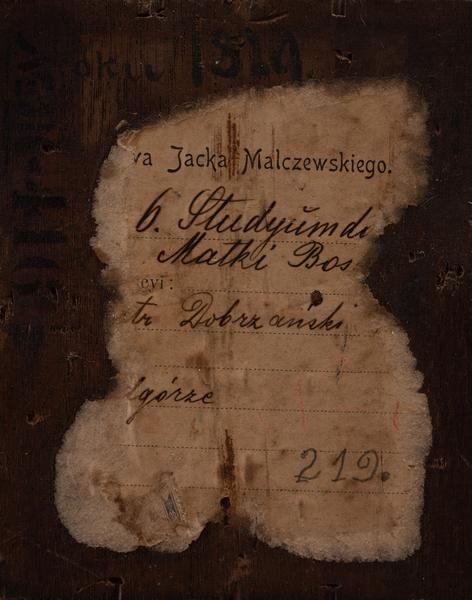 oku 1829.
wa Jacka Malczewskiego.
6. Studyum do
Matki Bos
cyi:
tr Dobrzański
górze
219.